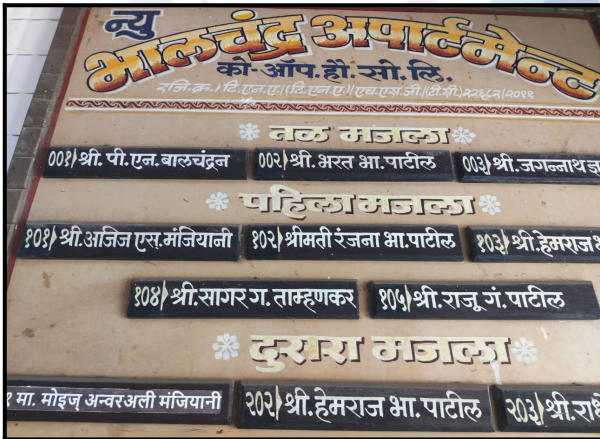 न्यु
भालचंद्र अपार्टमेन्ट
को-ऑप.हौ.सो.लि.
रजि.क्र.।टि.एन.ए।(टि.एन.ए।)एच.एस.जी।(टी.सी)२२६८२/२०११
तळ मजला
००१ श्री. पी.एन.बालचंद्रन ००२ श्री. भरत भा. पाटील ००३ श्री. जगन्नाथ
पहिला मजला
१०१ श्री.अजिज एस.मंजियानी १०२ श्रीमती रंजना भा.पाटील १०३ श्री.हेमराज
१०४ श्री.सागर ग. ताम्हणकर १०५ श्री.राजू गं.पाटील
दुसरा मजला
१ मा. मोइज् अन्वरअली मंजियानी २०२ श्री.हेमराज भा. पाटील २०३ श्री.